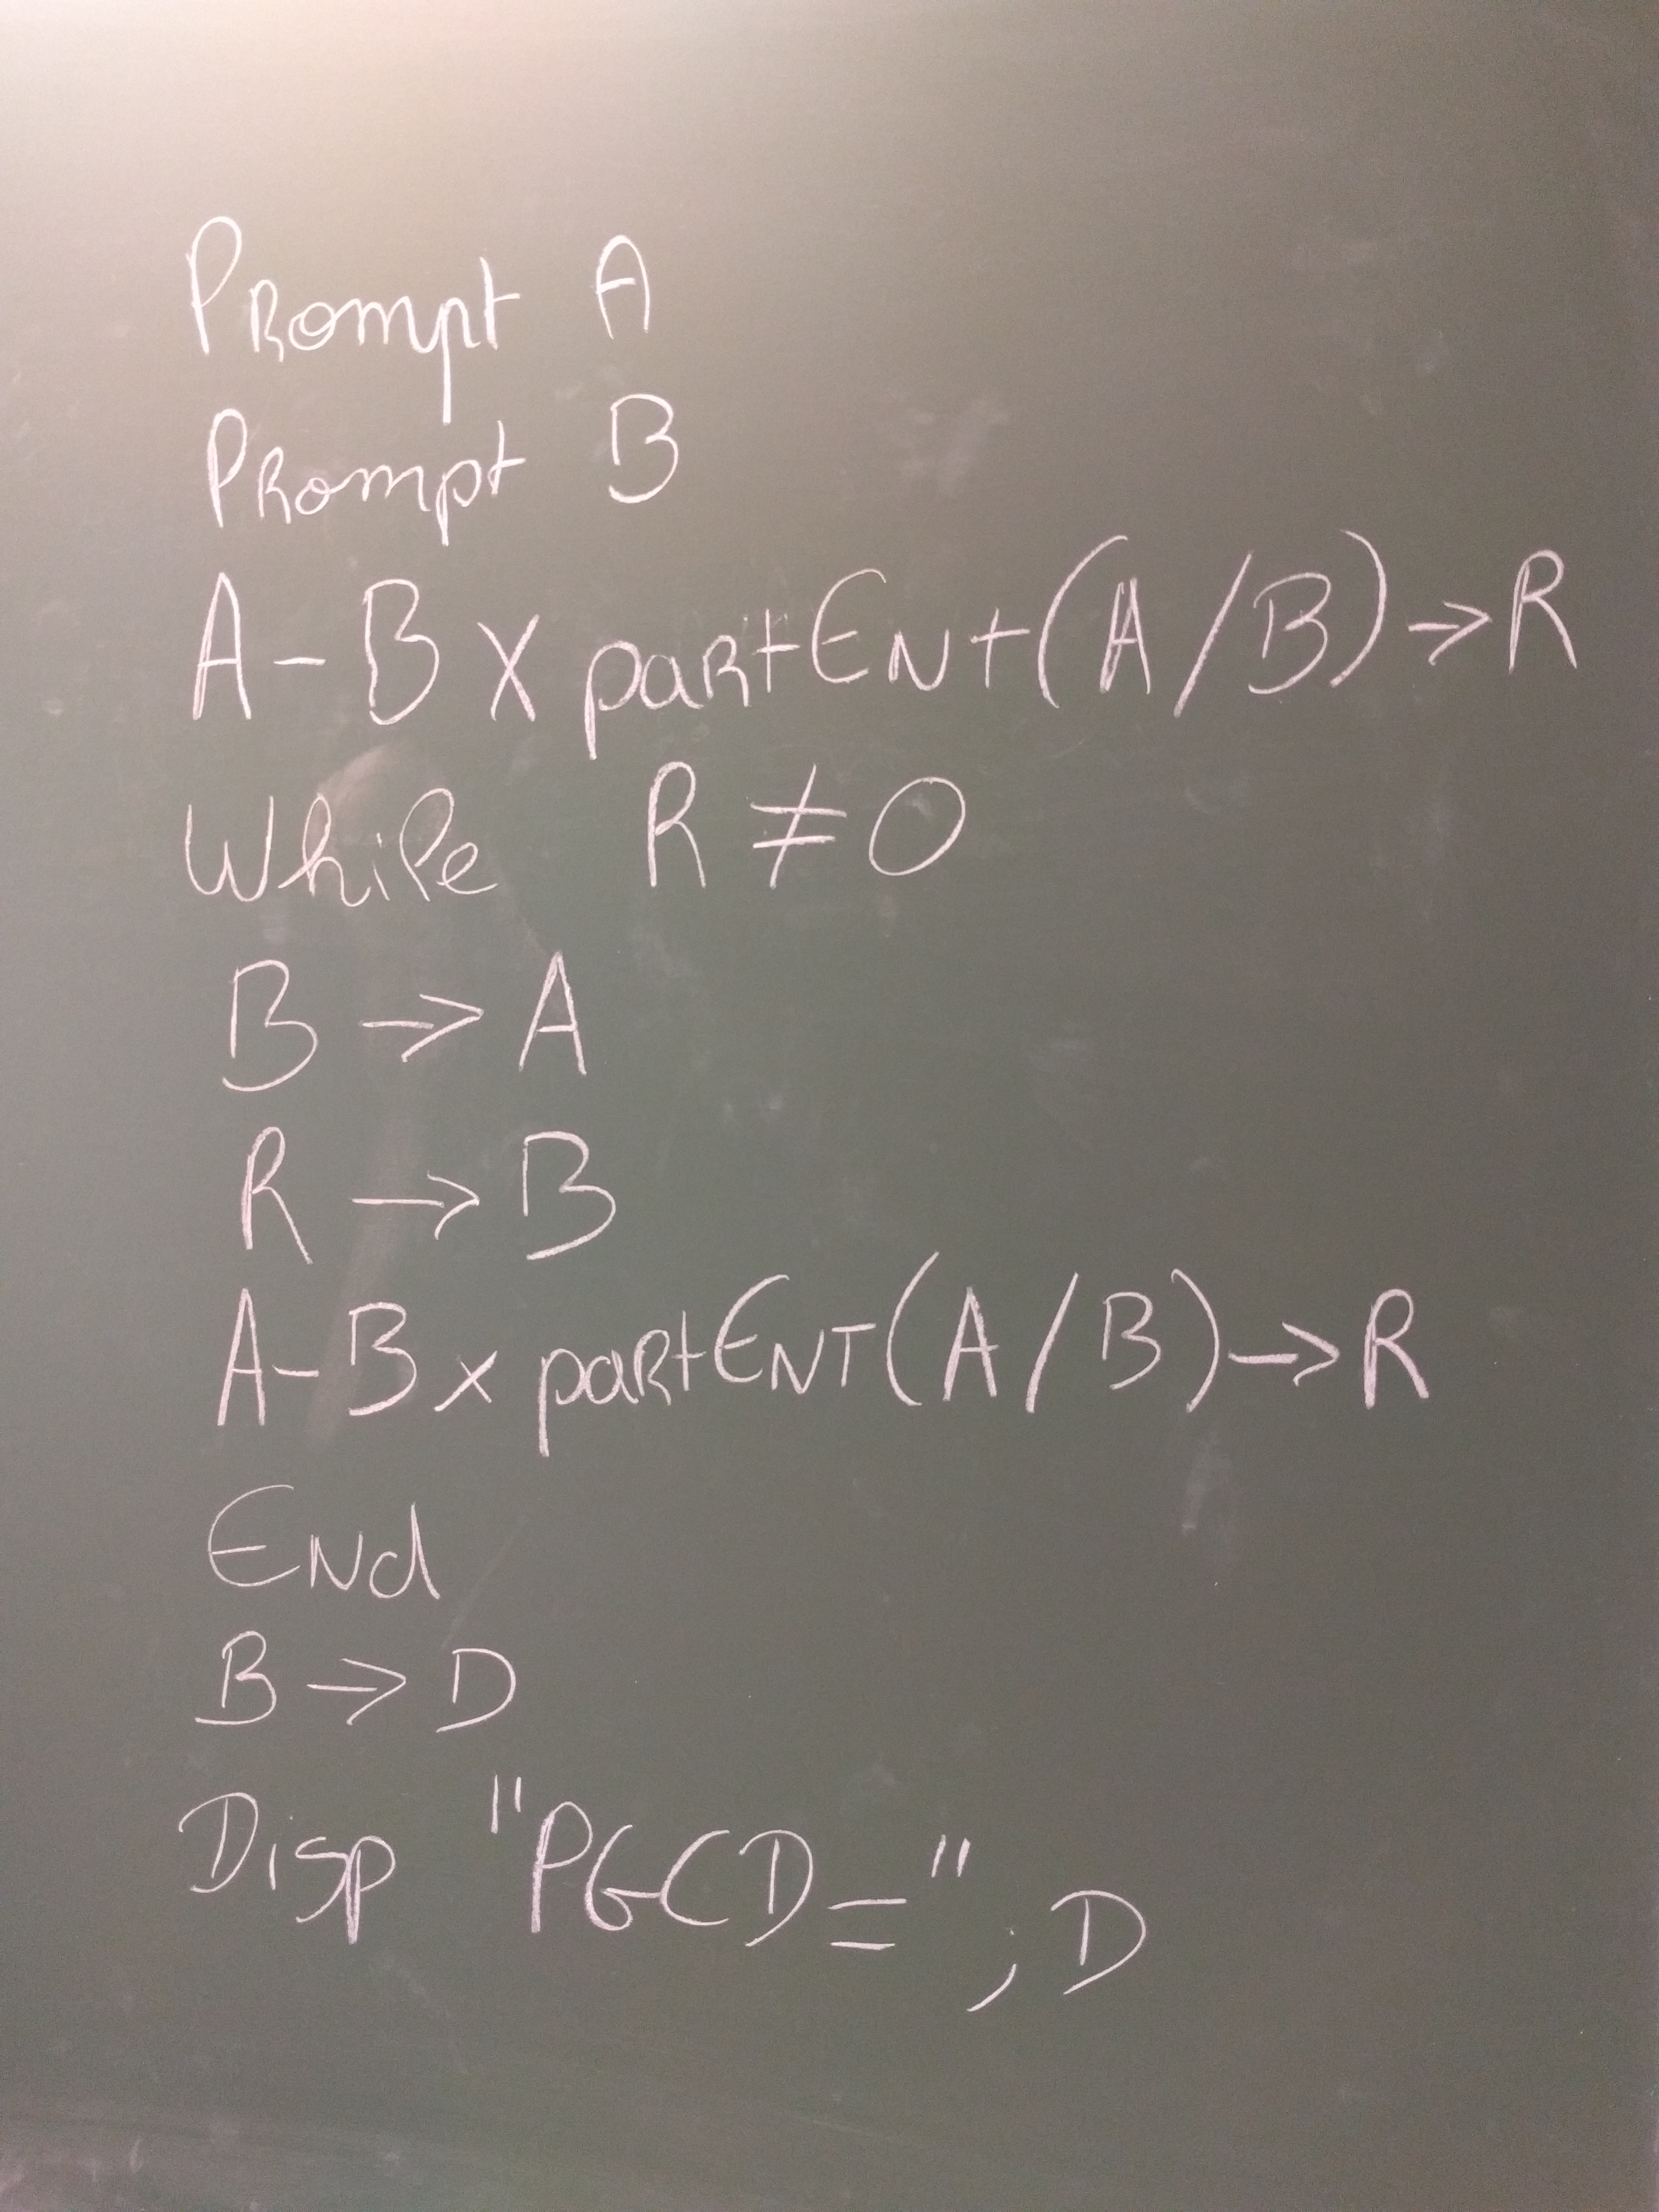 Prompt A
Prompt B
A-B×partEnt(A/B)→R
While R≠0
B→A
R→B
A-B×partENT(A/B)→R
End
B→D
Disp "PGCD=",D